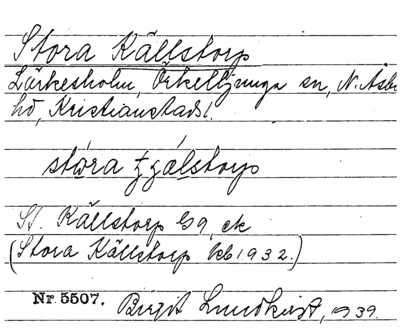 Stora Källstorp
Lärkesholm, Örkelljunga sn, N. Åsbo
hd, Kristianstads l.
stóra gálstorp
St. Källstorp 69, ek
(Stora Källstorp kb 1932.)
Nr. 5507. Birgit Lundkvist, 1939.